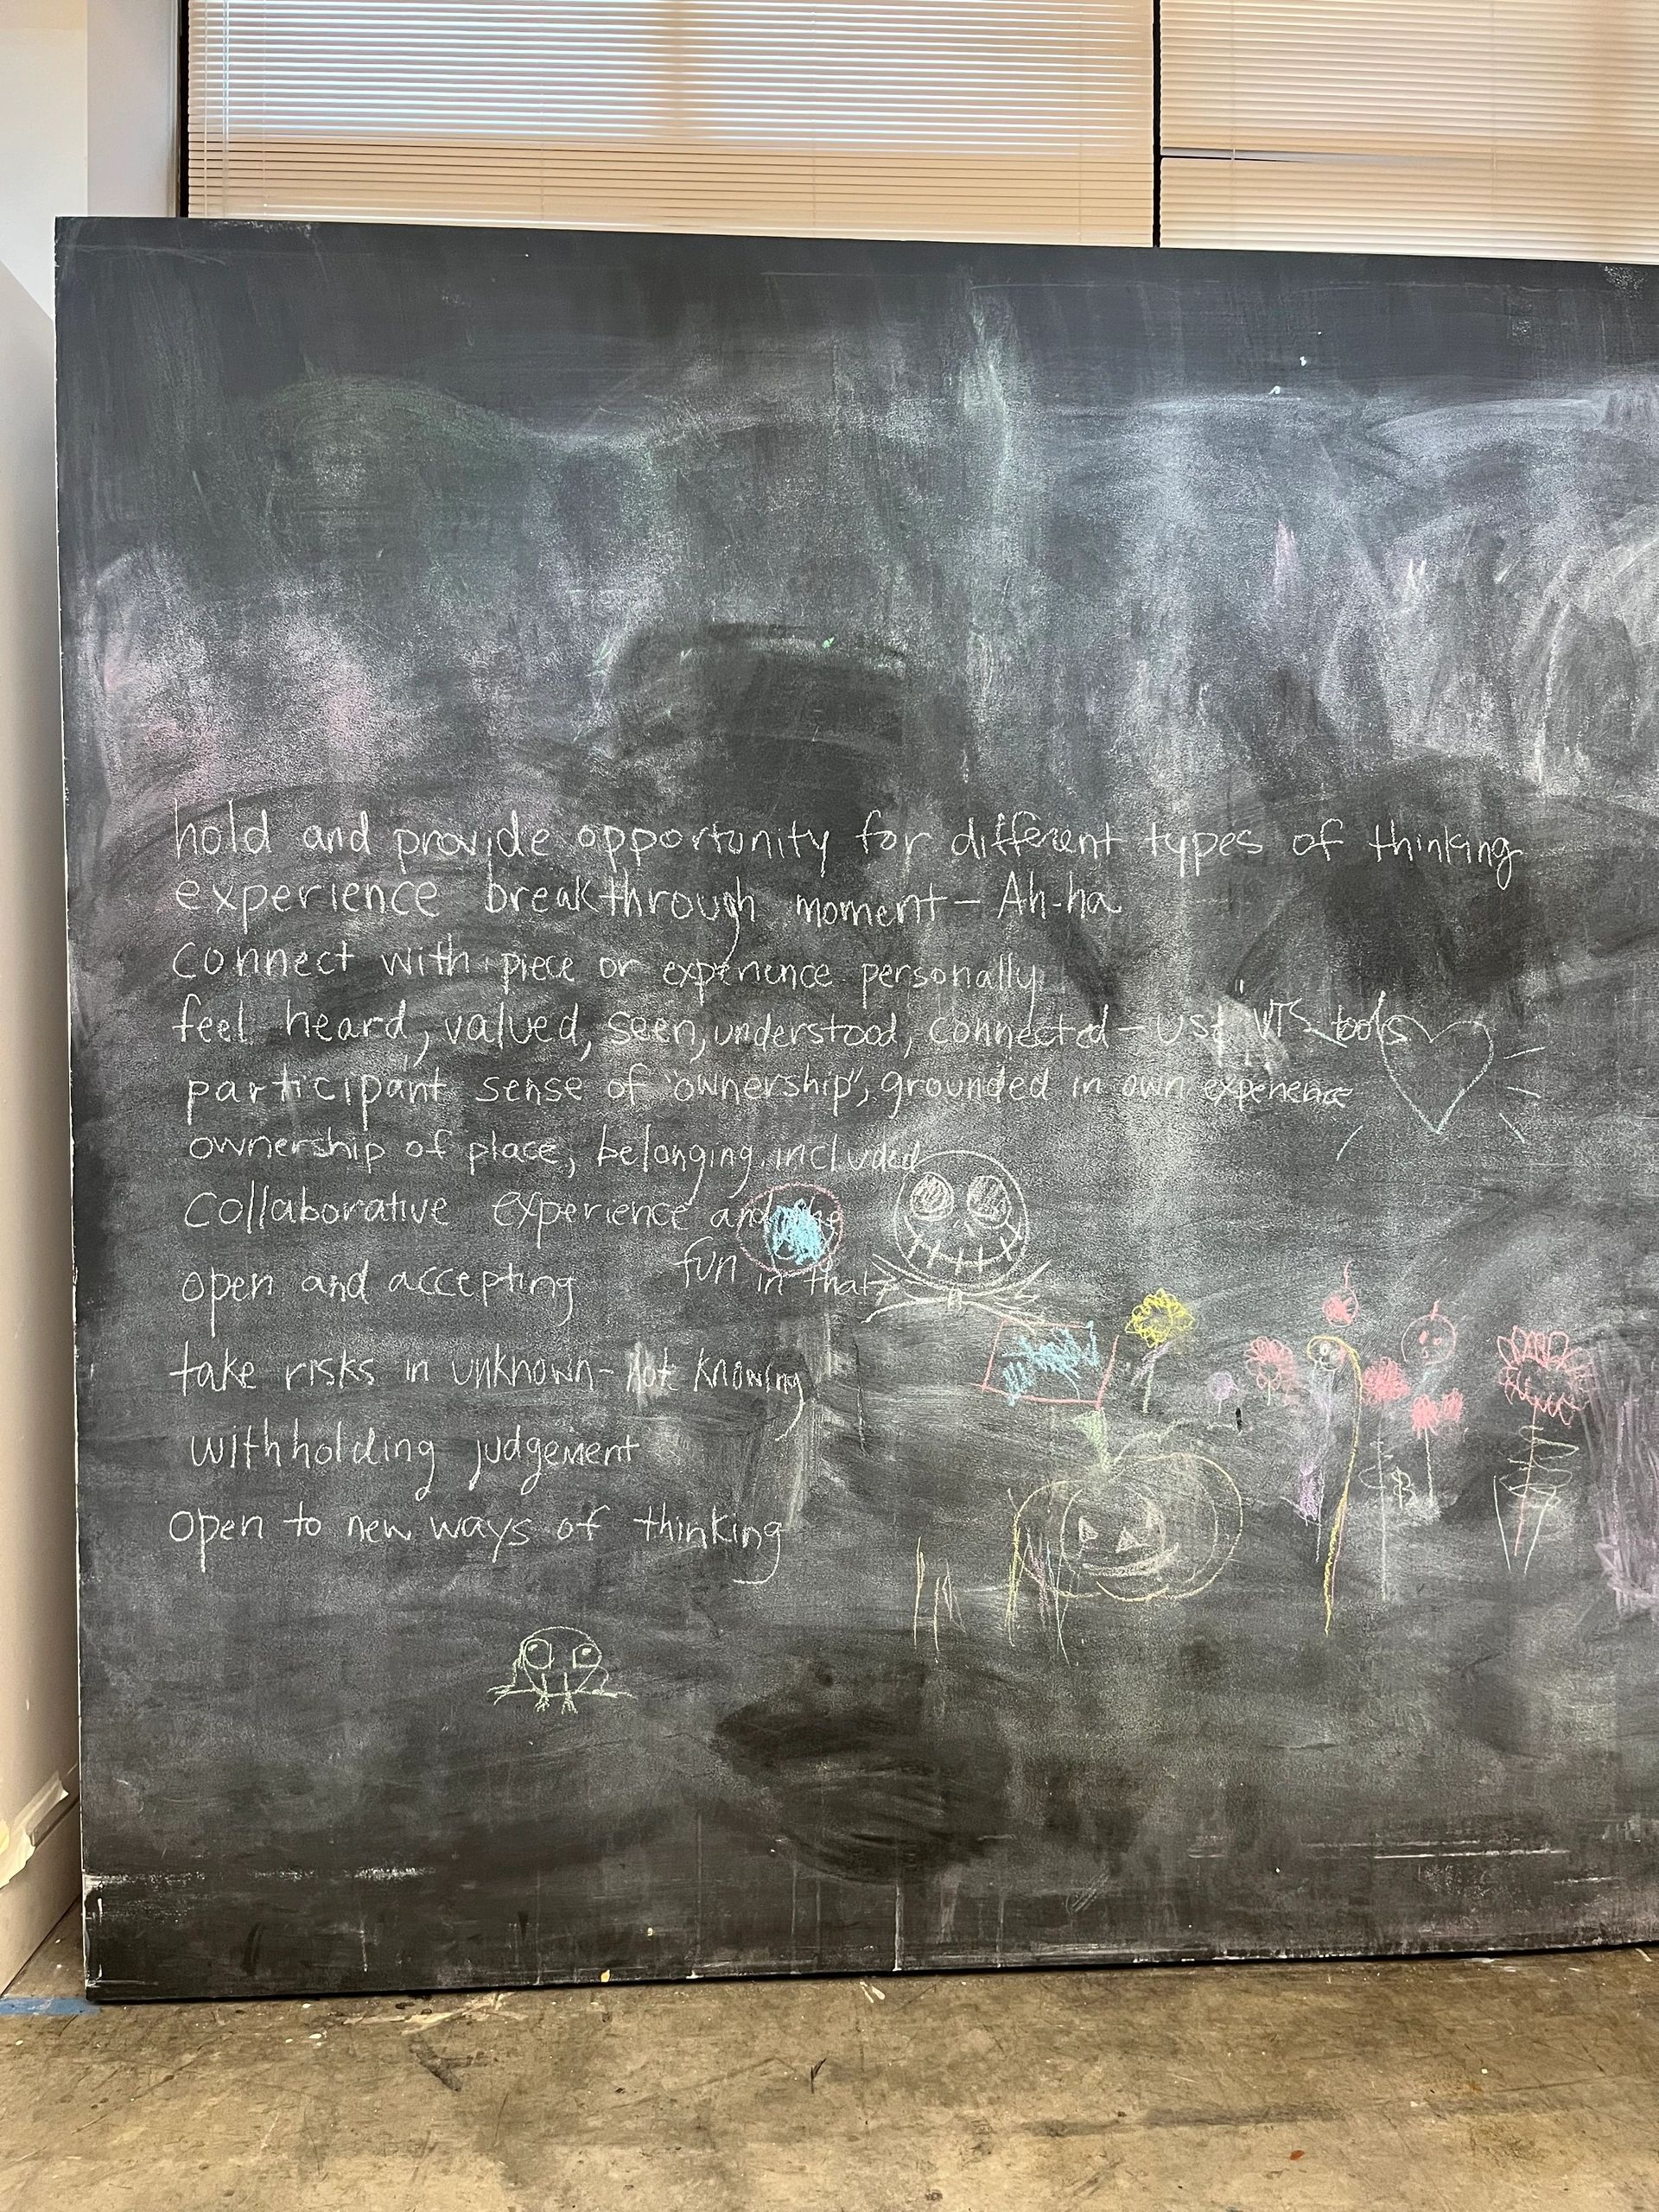 hold and provide opportunity for different types of thinking
experience breakthrough moment - Ah-ha
connect with piece or experience personally
feel heard, valued, seen, understood, connected - VTS tools
participant sense of "ownership", grounded in own experience
ownership of place, belonging, included
collaborative experience and the
fun in that
open and accepting
take risks in unknown - not knowing
withholding judgement
open to new ways of thinking